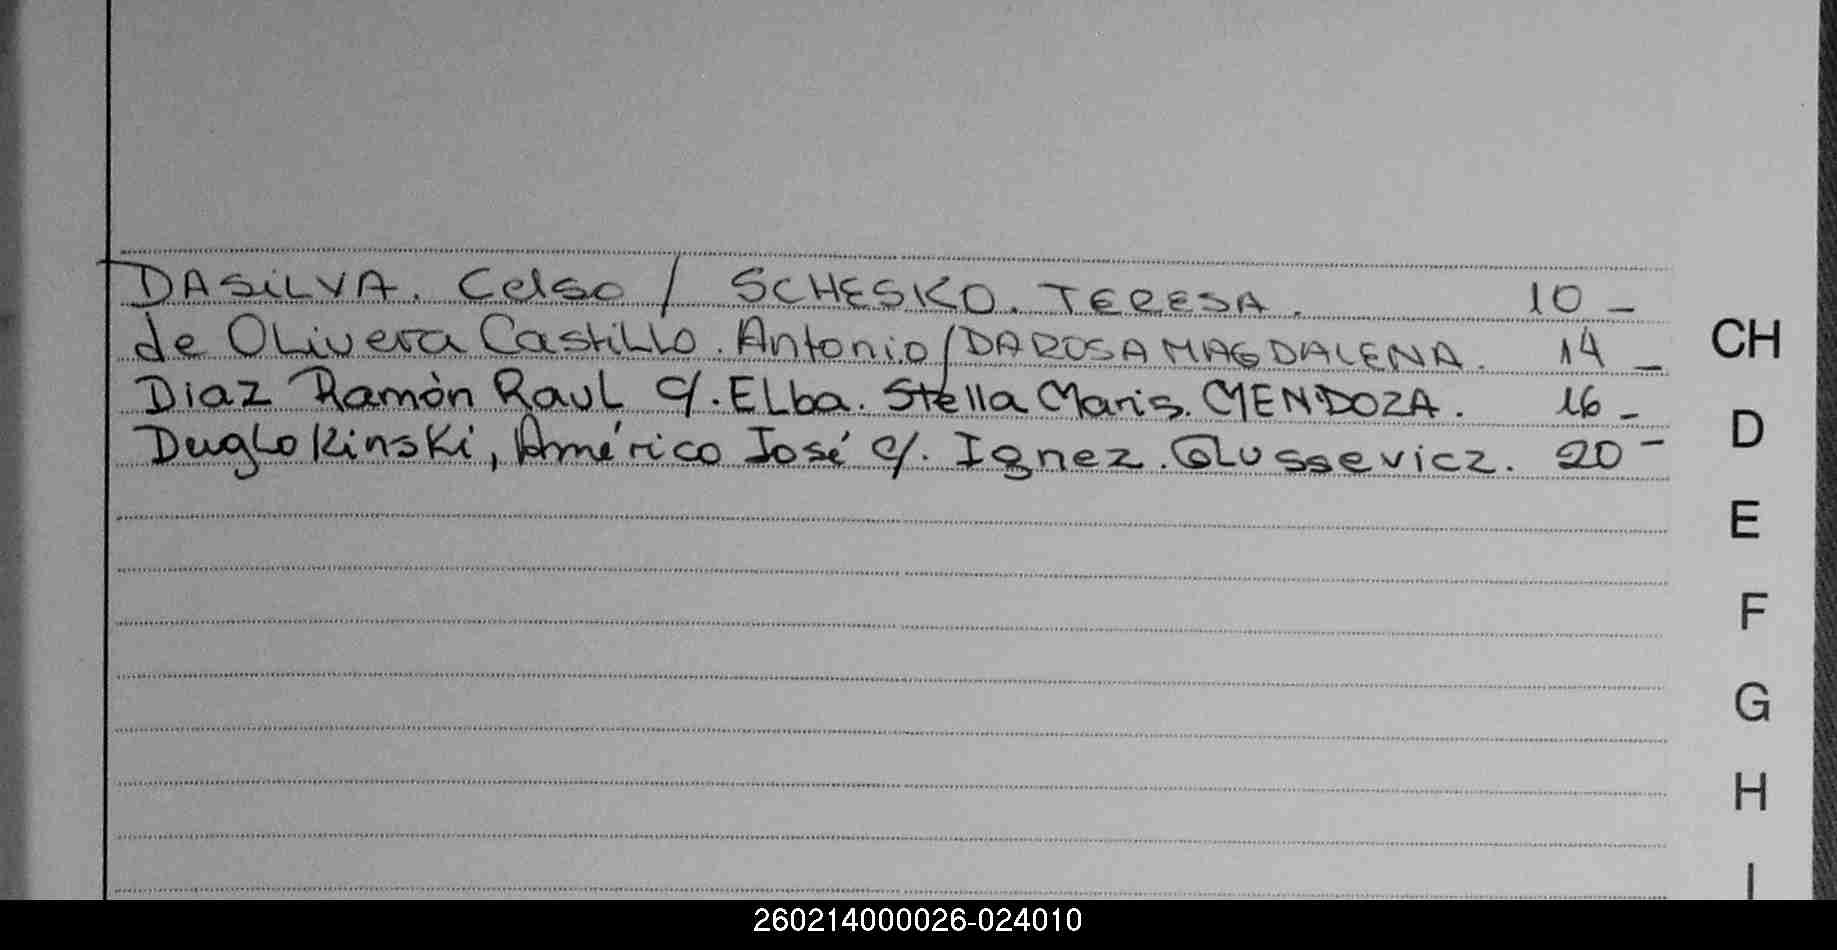 DASiLVA. Celso / SCHESKO. TERESA. 10 -
de OLivera Castillo. Antonio / DAROSA MAGDALENA. 14 -
CH
Diaz Ramòn Raul c/. ELba. Stella Maris. MENDOZA. 16 -
D
DugLoKinsKi, Américo José c/. Ignez. Glussevicz. 20 -
E
F
G
H
I
260214000026-024010